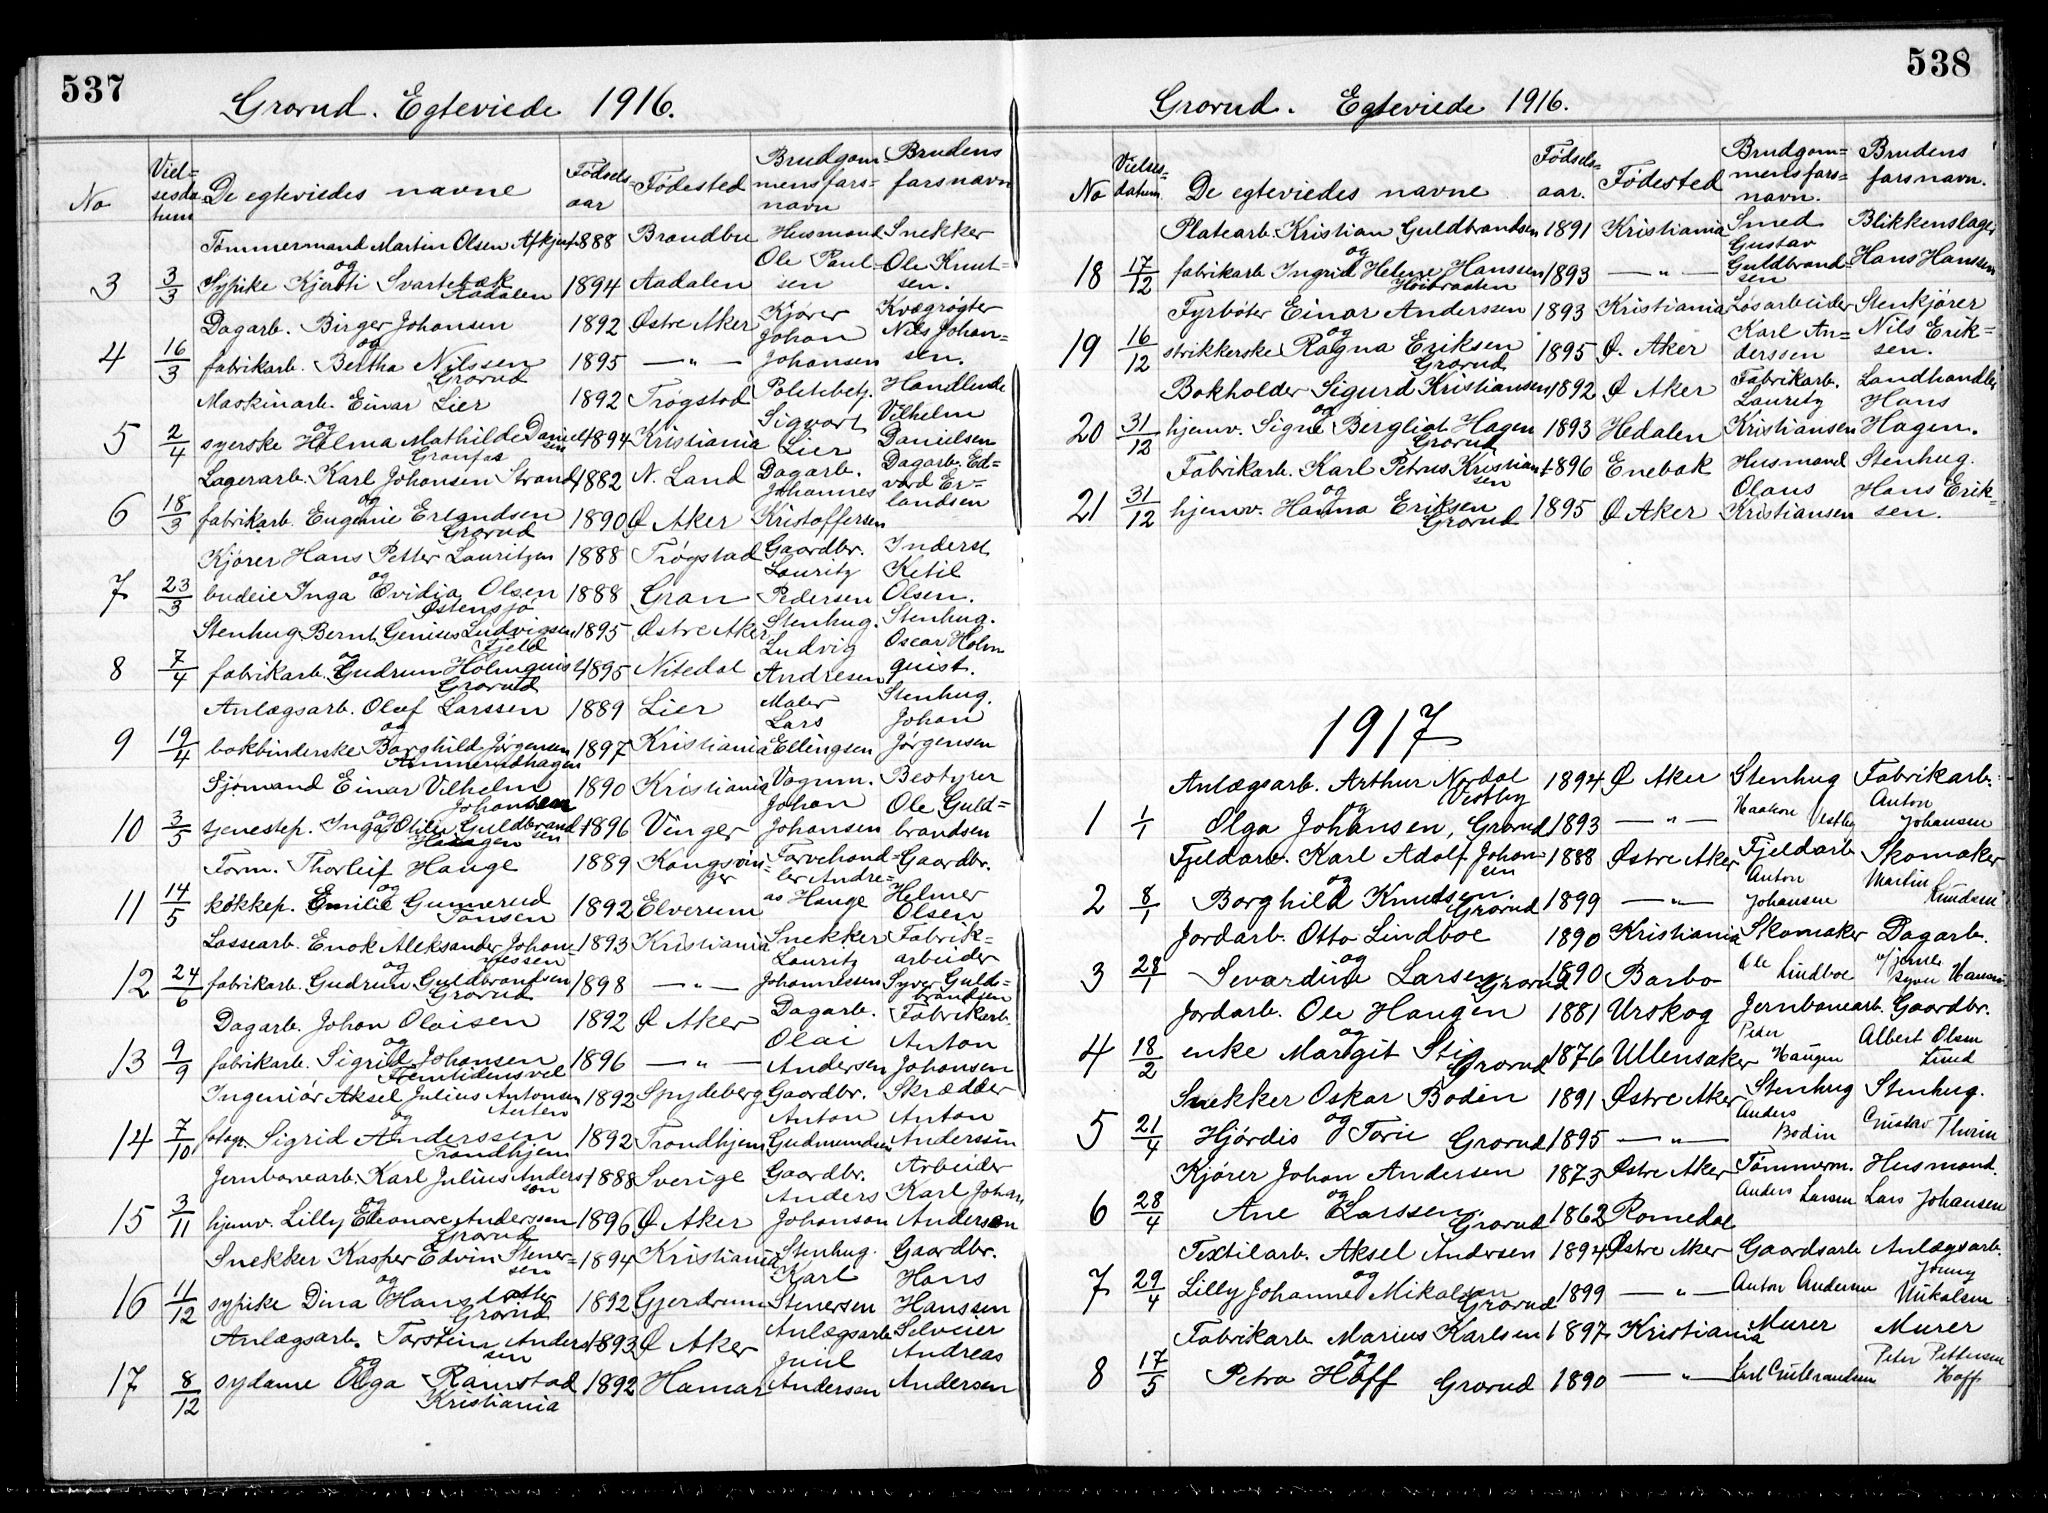 537
Grorud. Egteviede 1916.
No
Viel-
sesda-
tum
De egteviedes navne
Fødsels-
aar
Fødested
Brudgom-
mens fars-
navn
Brudens
farsnavn
Tømmermand Martin Olsen 1888 Brandbu Husmand Snekker
og Ole Paul- Ole Knut-
3 3/3 Sypike Kjersti Svartebæk 1894 Aadalen sen sen.
Aadalen
Dagarb. Birger Johansen 1892 Østre Aker Kjører Kvægrøgter
og Johan Nils Johan-
4 16/3 fabrikarb. Bertha Nilssen 1895 — „ — Johansen sen.
Grorud
Maskinarb. Einar Lier 1892 Trøgstad Politibetj. Handlende
og Sigvart Vilhelm
5 2/4 syerske Holma Mathilde Daniel- 1894 Kristiania Lier Danielsen
sen
Lagerarb. Karl Johansen Strand 1882 N. Land Dagarb. Dagarb. Ed-
og Johannes vard Er-
6 18/3 fabrikarb. Eugenie Erlandsen 1890 Ø Aker Kristoffersen landsen
Grorud
Kjører Hans Petter Lauritzen 1888 Trøgstad Gaardbr. Inderst
og Lauritz Ketil
7 23/3 budeie Inga Ovidia Olsen 1888 Gran Pedersen Olsen.
Østensjø
Stenhug Bernt Genius Ludvigsen 1895 Østre Aker Stenhug. Stenhug.
Fjeld Ludvig Oscar Holm
8 7/4 fabrikarb. Gudrun Holmquist 1895 Nitedal Andresen quist.
Grorud
Anlægsarb. Olaf Larssen 1889 Lier Maler Stenhug.
og Lars Johan
9 19/4 bokbinderske Borghild Jørgensen 1897 Kristiania Ellingsen Jørgensen
Ammerudhagen
Sjømand Einar Vilhelm 1890 Kristiania Vognm. Bestyrer
Johansen Johan Ole Guld-
og
10 3/5 tjenestep. Inga Olilie Guldbrand- 1896 Vinger Johansen brandsen
sen
Form. Thorleif Hauge 1889 Kongsvin- Farvehand- Gaardbr.
og ger ler Andre- Helmer
11 14/5 kokkep. Emilie Gunnerud 1892 Elverum as Hauge Olsen
Tonsen
Lassearb. Enok Aleksander Johan- 1893 Kristiania Snekker Fabrik-
nessen Lauritz arbeider
og
12 24/6 fabrikarb. Gudrun Guldbrandsen 1898 — „ — Johannessen Syver Gulds-
Grorud brandsen
Dagarb. Johan Olaisen 1892 Ø Aker Dagarb. Fabrikarb.
og Olai Anton
13 9/9 fabrikarb. Sigrid Johansen 1896 — „ — Andersen Johansen
Fremtidensvel
Ingeniør Aksel Julius Antonsen 1892 Spydeberg Gaardbr. Skrædder
og Anton Anton
14 7/10 fotogr. Sigrid Anderssen 1892 Trondhjem Gudmundsen Anderssen
Trondhjem
Jernbanearb. Karl Julius Anders- 1888 Sverige Gaardbr. Arbeider
son
og Anders Karl Johan
15 3/11 hjemv. Lilly Eleonore Anderssen 1896 Ø Aker Johanson Anderson
Grorud
Snekker Kasper Edvin Stener- 1894 Kristiania Stenhug. Gaardbr.
sen
og Karl Hans
16 11/12 sypike Dina Hansdatter 1892 Gjerdrum Stenersen Hanssen
Grorud
Anlægsarb. Torstein Anders- 1893 Ø Aker Anlægsarb Selveier
sen
og Juul Andreas
17 8/12 sydame Olga Ramstad 1892 Hamar Andersen Andersen
Kristiania
538
Grorud. Egteviede 1916.
No
Vielses-
datum.
De egteviedes navne
Fødsels-
aar.
Fødested
Brudgom-
mens fars-
navn.
Brudens
farsnavn.
Platearb. Kristian Guldbrandsen 1891 Kristiania Smed Blikkenslager
og Gustav
18 17/12 fabrikarb Ingrid Helene Hanssen 1893 — „ — Guldbrand- Hans Hanssen
Høibraaten sen
Fyrbøter Einar Anderssen 1893 Kristiania Løsarbeider Stenkjører
og Karl An- Nils Erik-
19 16/12 strikkerske Ragna Eriksen 1895 Ø. Aker derssen sen.
Grorud
Bokholder Sigurd Kristiansen 1892 Ø Aker Fabrikarb. Landhandler
og Lauritz Hans
20 31/12 hjemv. Signe Bergliot Hagen 1893 Hedalen Kristiansen Hagen.
Grorud
Fabrikarb. Karl Petrus Kristian- 1896 Enebak Husmand Stenhug.
sen
og Olaus Hans Erik-
21 31/12 hjemv. Hanna Eriksen 1895 Ø Aker Kristiansen sen.
Grorud
1917
Anlægsarb. Arthur Nordal 1894 Ø Aker Stenhug Fabrikarb.
Vestby Anton
og
1 1/1 Olga Johansen, Grorud 1893 — „ — Haakon Vestby Johansen
Fjeldarb. Karl Adolf Johan- 1888 Østre Aker Fjeldarb Skomaker
sen Anton Martin
og
2 8/1 Borghild Knudsen. 1899 — „ — Johansen Knudsen
Grorud
Jordarb. Otto Lindboe 1890 Kristiania Skomaker Dagarb.
og Ole Lindboe
3 28/1 Sevardine Larsen Grorud 1890 Barbo Hansen
Jordarb. Ole Haugen 1881 Urskog Jernbanearb. Gaardbr.
og Peter Albert Olsen
4 18/2 enke Margit Stig Grorud 1876 Ullensaker Haugen Lund
Snekker Oskar Bodin 1891 Østre Aker Stenhug Stenhug.
og Anders Gustav
5 21/4 Hjørdis Torie Grorud 1895 — „ — Bodin Thorin
Kjører Johan Andersen 1873 Østre Aker Tømmerm. Husmand.
og Anders Larsen Lars Johansen
6 28/4 Ane Larssen. Grorud 1862 Romedal
Textilarb. Aksel Andersen 1894 Østre Aker Gaardsarb Anlægsarb.
og
7 29/4 Lilly Johanne Mikalsen Grorud 1899 — „ — Anton Andersen Mikalsen
Fabrikarb Marius Karlsen 1897 Kristiania Murer Murer
og Peter Pettersen
8 17/5 Petra Hoff Grorud 1890 — „ — Karl Gulbrandsen Hoff